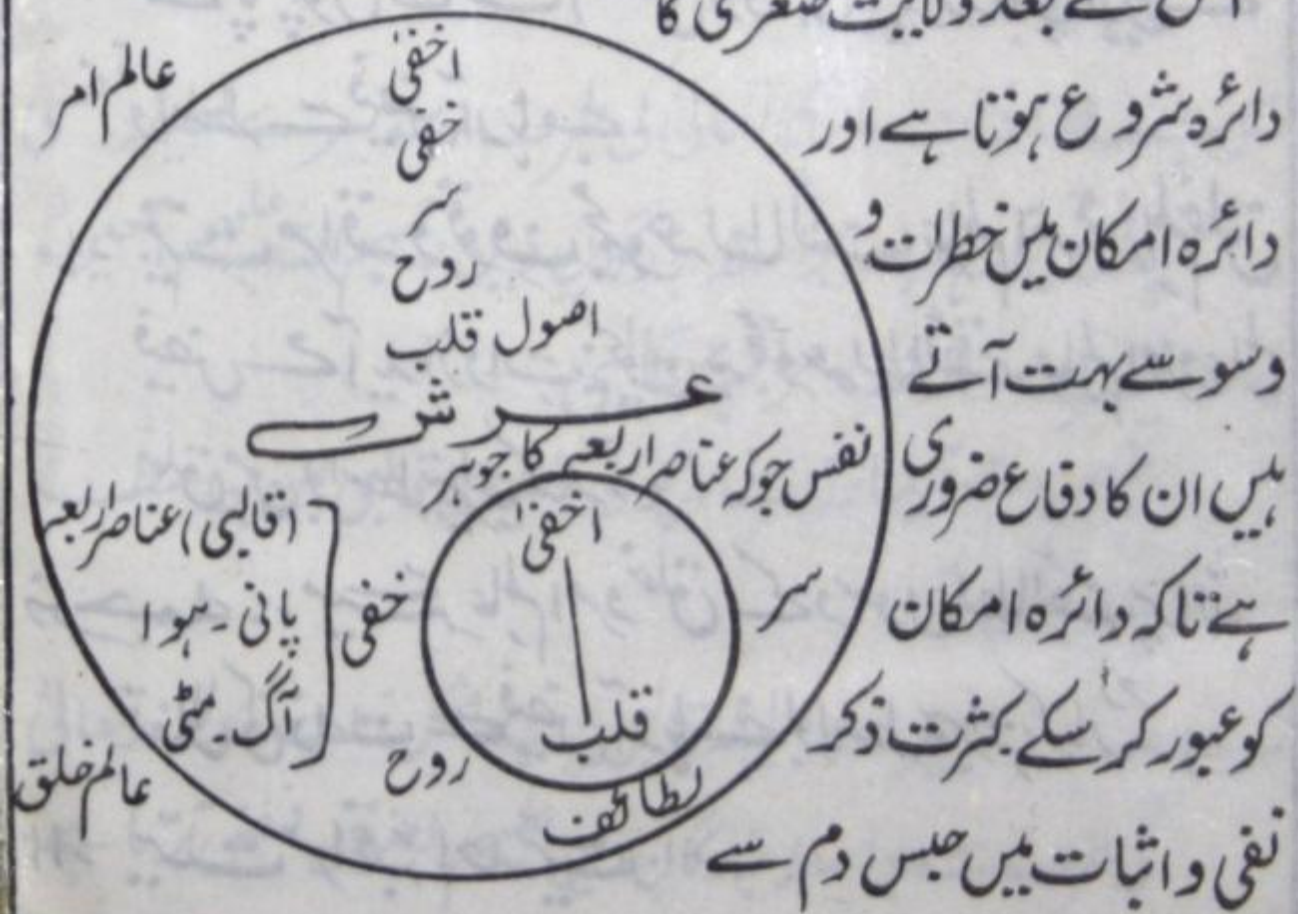 اس کے بعد ولایت صغریٰ کا
دائرہ شروع ہوتا ہے اور
دائرہ امکان میں خطرات و
وسوسے بہت آتے
ہیں ان کا دفاع ضروری
ہے تاکہ دائرہ امکان
کو عبور کر سکے بکثرت ذکر
نفی و اثبات میں حبس دم سے
عالم امر
اخفیٰ
خفی
سر
روح
اصول قلب
عرش
نفس جو کہ عناصر اربعہ کا جوہر
اخفیٰ
قلب
سر
خفی
روح
لطائف
(قالبی) عناصر اربعہ
پانی ۔ ہوا
آگ ۔ مٹی
عالم خلق